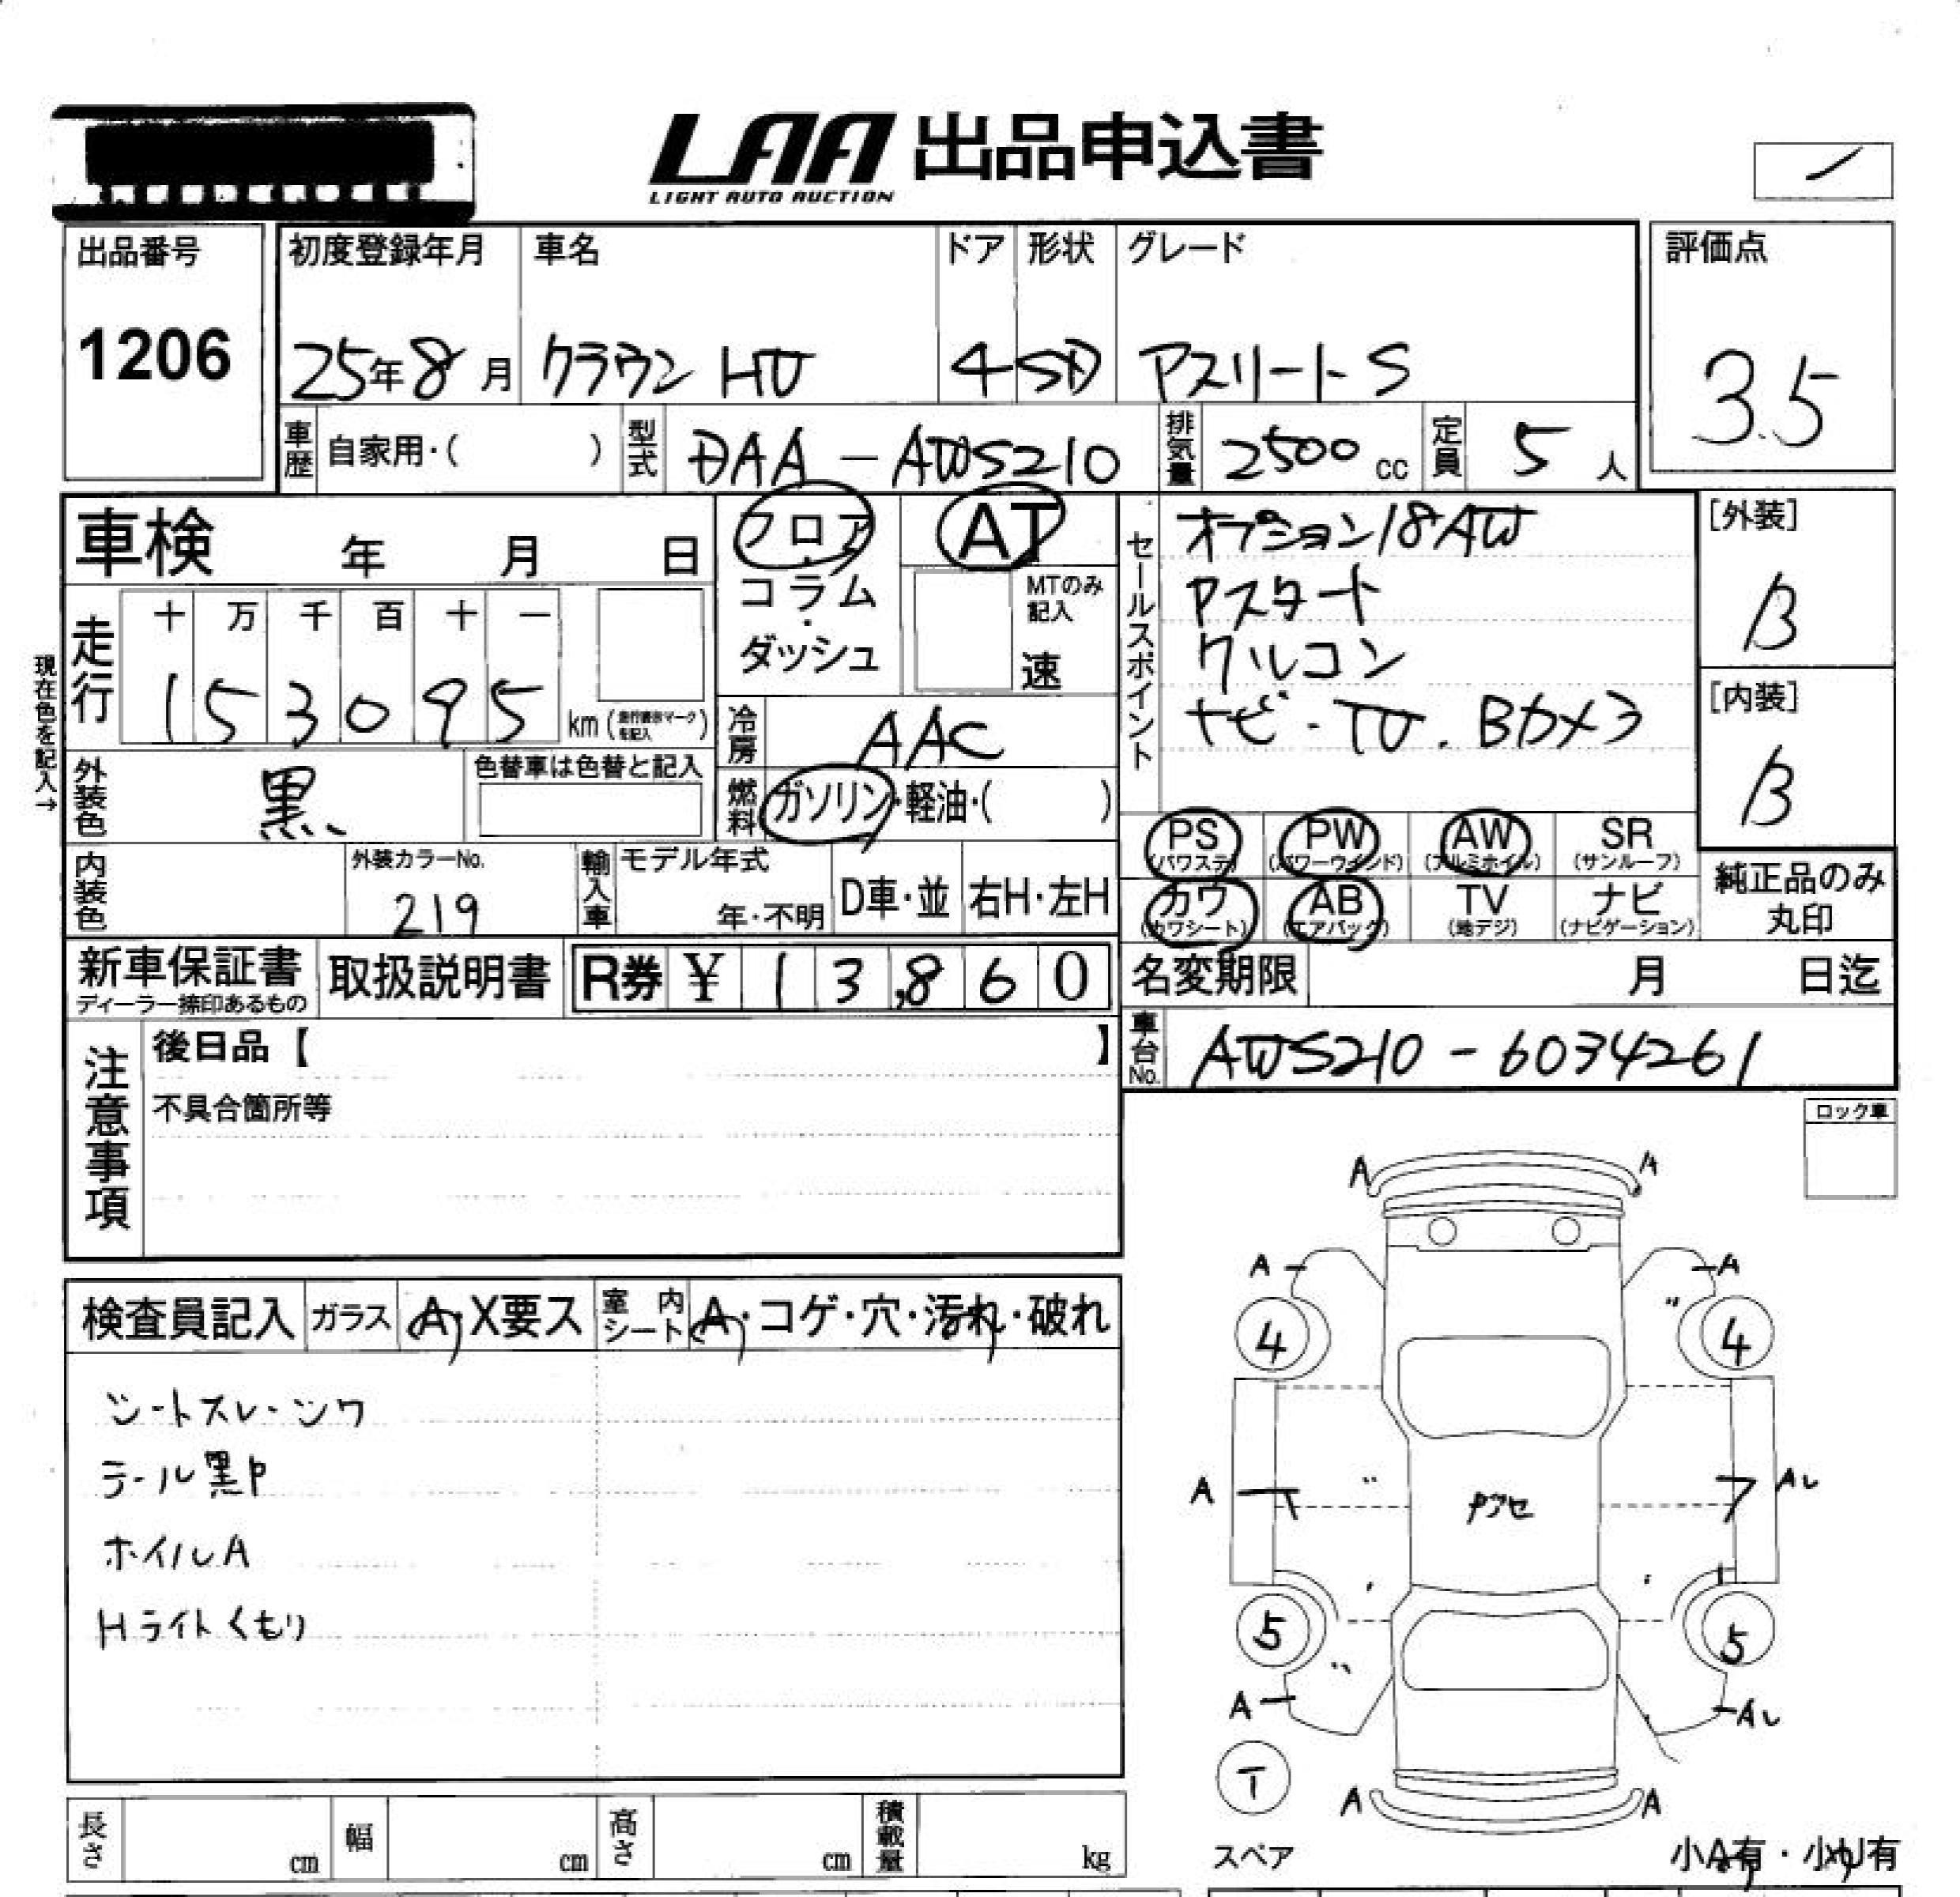 LAA 出品申込書
LIGHT AUTO AUCTION
出品番号
1206
初度登録年月
25年8月
車名
クラウン HV
ドア
4
形状
SD
グレード
アスリートS
評価点
3.5
車歴 自家用・( )
型式 DAA-AWS210
排気量 2500 cc
定員 5 人
車検 年 月 日
フロア・コラム・ダッシュ
AT
MTのみ記入
速
セールスポイント
オプション18AW
Pスタート
クルコン
ナビ・TV.Bカメラ
[外装]
B
[内装]
B
現在色を記入→
走行
十 万 千 百 十 一
1 5 3 0 9 5 km
冷房 AAC
外装色 黒
色替車は色替と記入
燃料 ガソリン・軽油・( )
PS (パワステ)
PW (パワーウインド)
AW (アルミホイル)
SR (サンルーフ)
カワ (カワシート)
AB (エアバッグ)
TV (地デジ)
ナビ (ナビゲーション)
純正品のみ丸印
内装色
外装カラーNo.
219
輸入車
モデル年式
年・不明
D車・並
右H・左H
新車保証書
ディーラー捺印あるもの
取扱説明書
R券 ¥ 13,860
名変期限 月 日迄
車台No. AWS210-6034261
注意事項
後日品【 】
不具合箇所等
ロック車
検査員記入
ガラス A・X要ス
室内シート A・コゲ・穴・汚れ・破れ
シートスレ・シワ
テール黒P
ホイルA
Hライトくもり
A A
A A
4 4
A Aレ
5 5
A Aレ
T
A A
スペア
小A有・小U有
長さ cm
幅 cm
高さ cm
積載量 kg